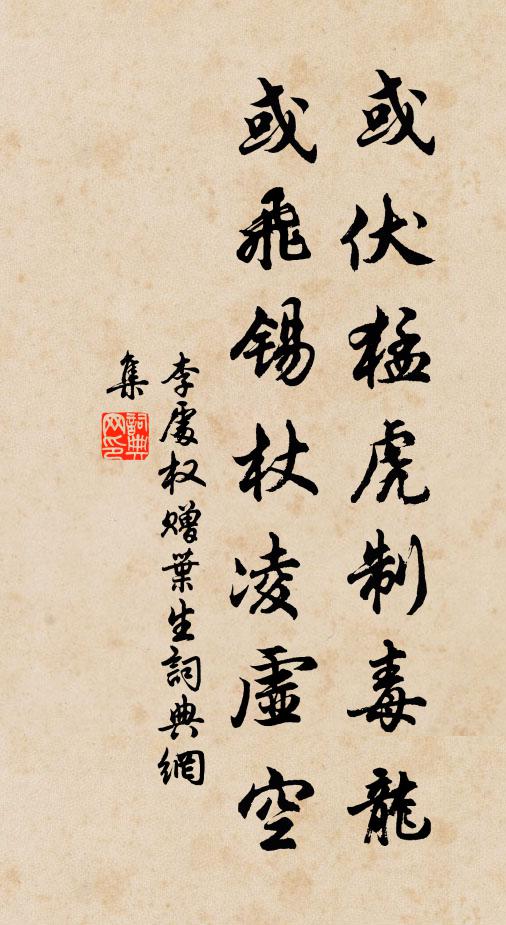 或伏猛虎制毒龍
或飛錫杖凌虛空
李處权贈葉生詞典網
集
詞典
网印